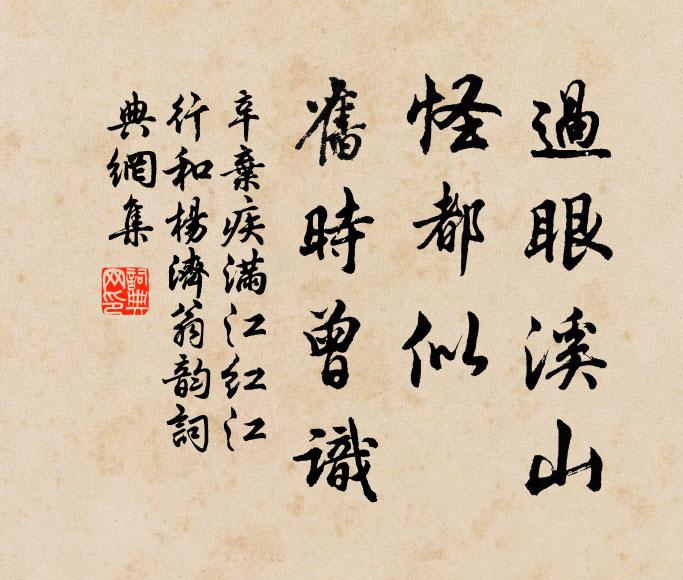 過眼溪山
怪都似
舊時曾識
辛棄疾滿江紅江
行和楊濟翁韵詞
典網集
詞典網印